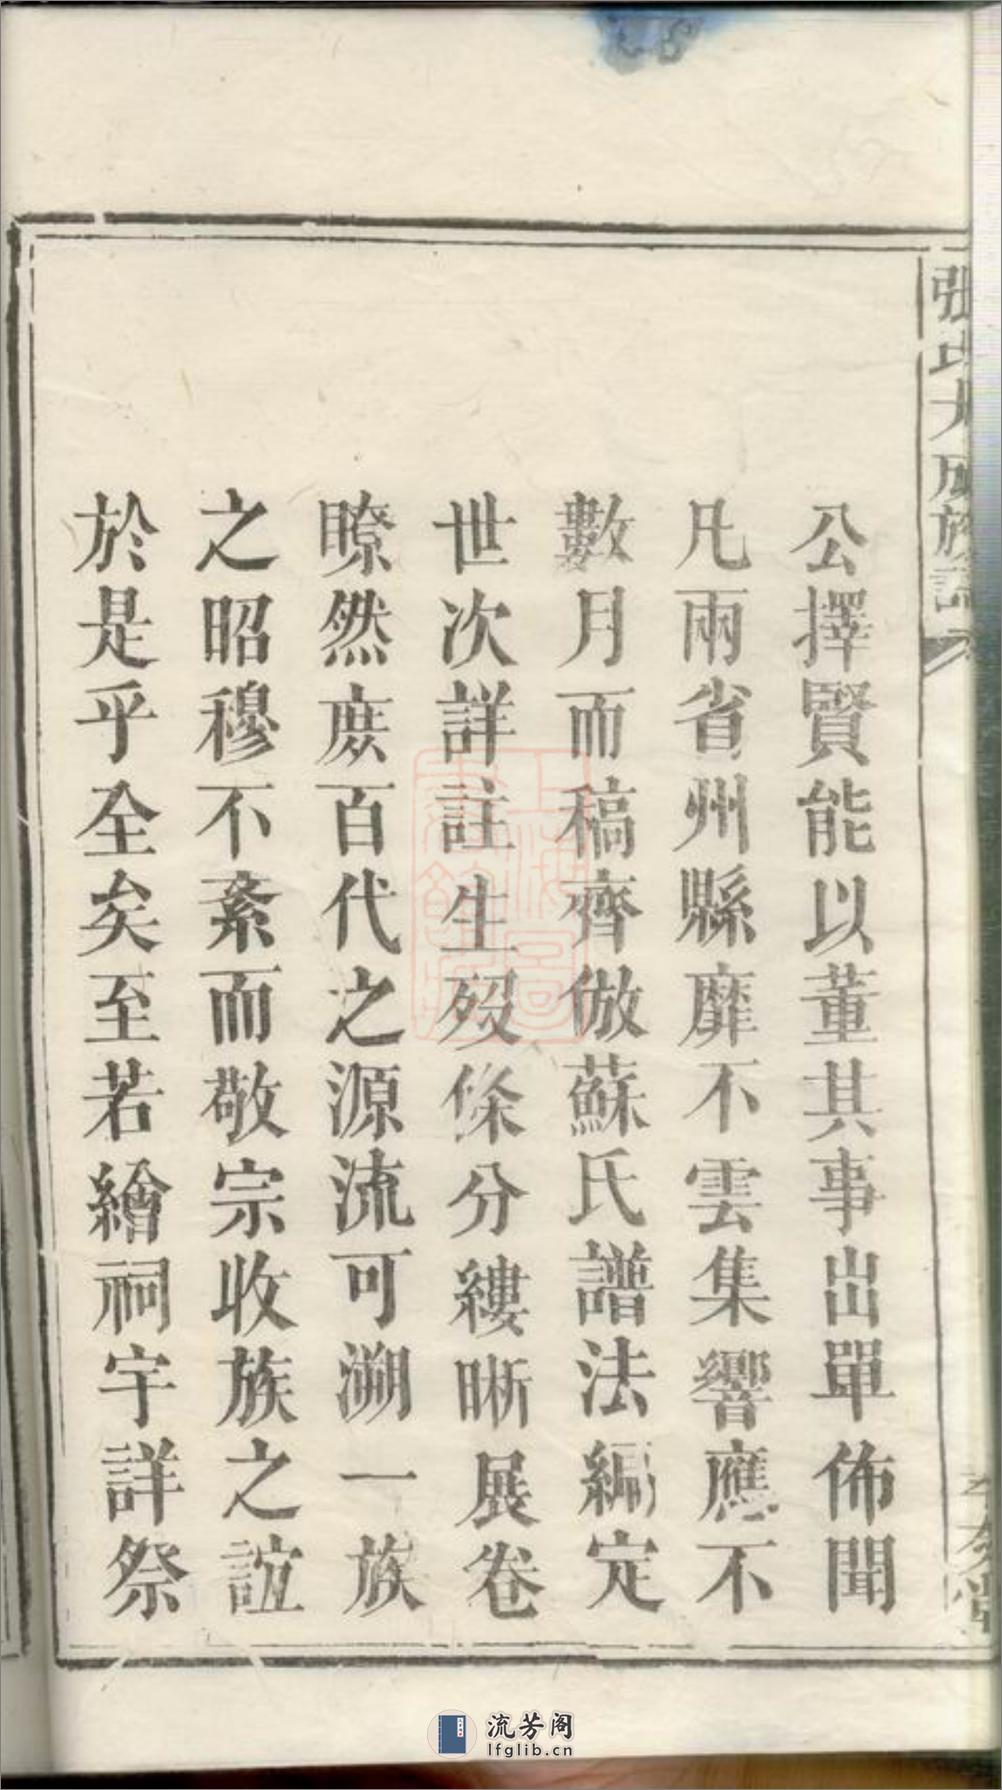 張氏大成族譜
公擇賢能以董其事出單佈聞
凡兩省州縣靡不雲集響應不
數月而稿齊倣蘇氏譜法編定
世次詳註生歿條分縷晰展卷
瞭然庶百代之源流可溯一族
之昭穆不紊而敬宗收族之誼
於是乎全矣至若繪祠宇詳祭
流芳阁
lfglib.cn